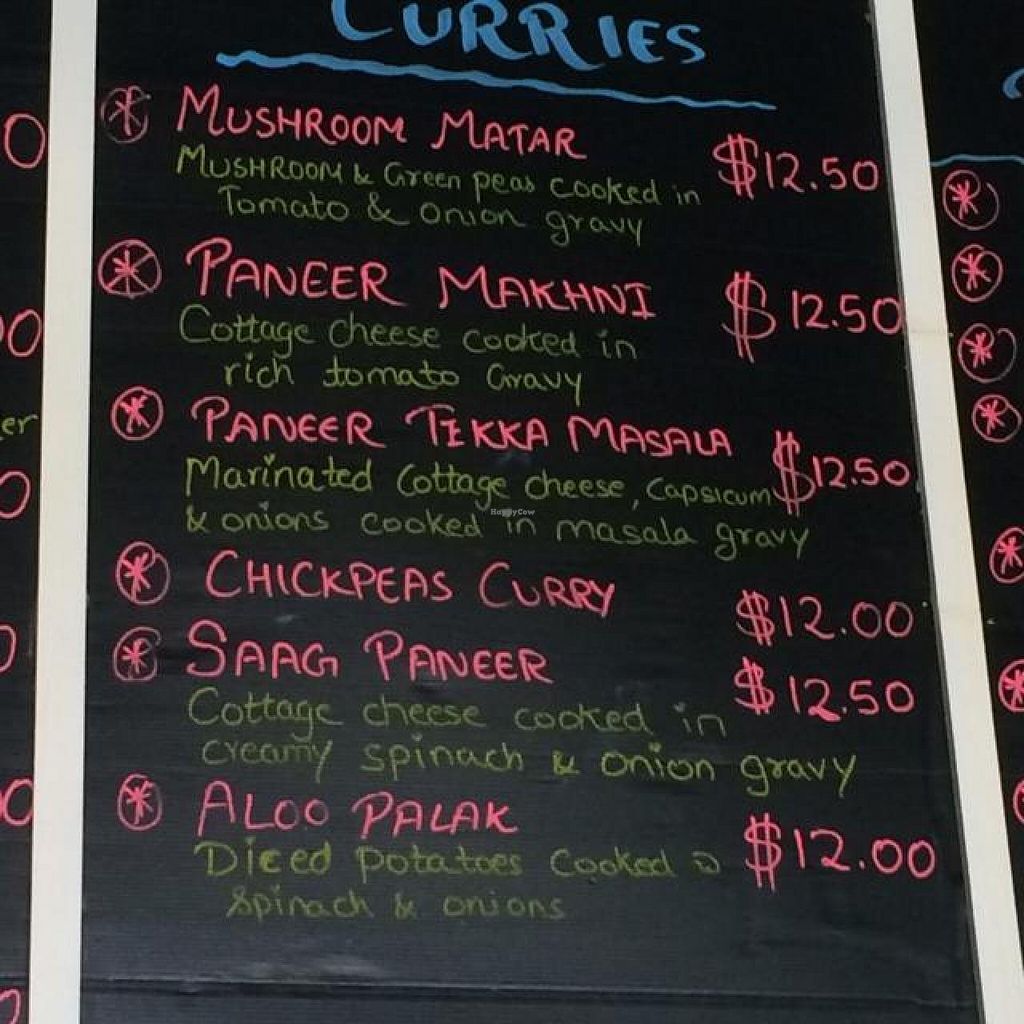 CURRIES
MUSHROOM MATAR $12.50
MUSHROOM & Green peas cooked in
Tomato & onion gravy
PANEER MAKHNI $12.50
Cottage cheese cooked in
rich tomato Gravy
PANEER TIKKA MASALA $12.50
Marinated Cottage cheese, Capsicum
& onions cooked in masala gravy
HappyCow
CHICKPEAS CURRY $12.00
SAAG PANEER $12.50
Cottage cheese cooked in
creamy spinach & onion gravy
ALOO PALAK $12.00
Diced potatoes cooked
Spinach & onions